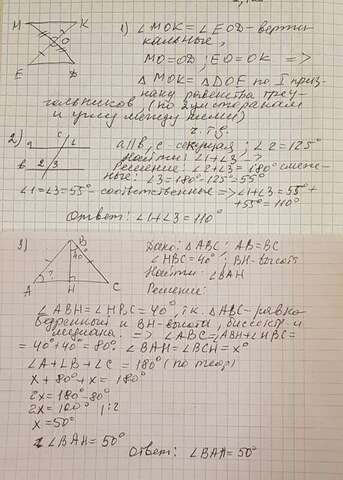 М К
О
Е D
1) ∠MOK = ∠EOD - верти-
кальные,
MO=OD; EO=OK =>
Δ MOK = Δ DOE по I приз-
наку равенства треу-
гольников, (по 2 м сторонам
и углу между ними)
ч.т.д.
2) a c 1
b 2 3
a||b, c - секущая; ∠2=125°
Найти: ∠1+∠3 - ?
Решение: ∠2+∠3=180° смеж-
ные; ∠3=180°-125°=55°
∠1=∠3=55° - соответственные => ∠1+∠3=55°+
+55°=110°
Ответ: ∠1+∠3=110°
3) B
40°
?
A H C
Дано: ΔABC; AB=BC
∠HBC=40°; BH-высота
Найти: ∠BAH
Решение:
∠ABH=∠HBC=40°, т.к. ΔABC-равно-
бедренный и BH-высота, биссектр. и
медиана => ∠ABC=∠ABH+∠HBC=
=40°+40°=80°. ∠BAH=∠BCH=x°
∠A+∠B+∠C=180° (по теор)
x+80°+x=180°
2x=180°-80°
2x=100° |:2
x=50°
∠BAH=50°
Ответ: ∠BAH=50°